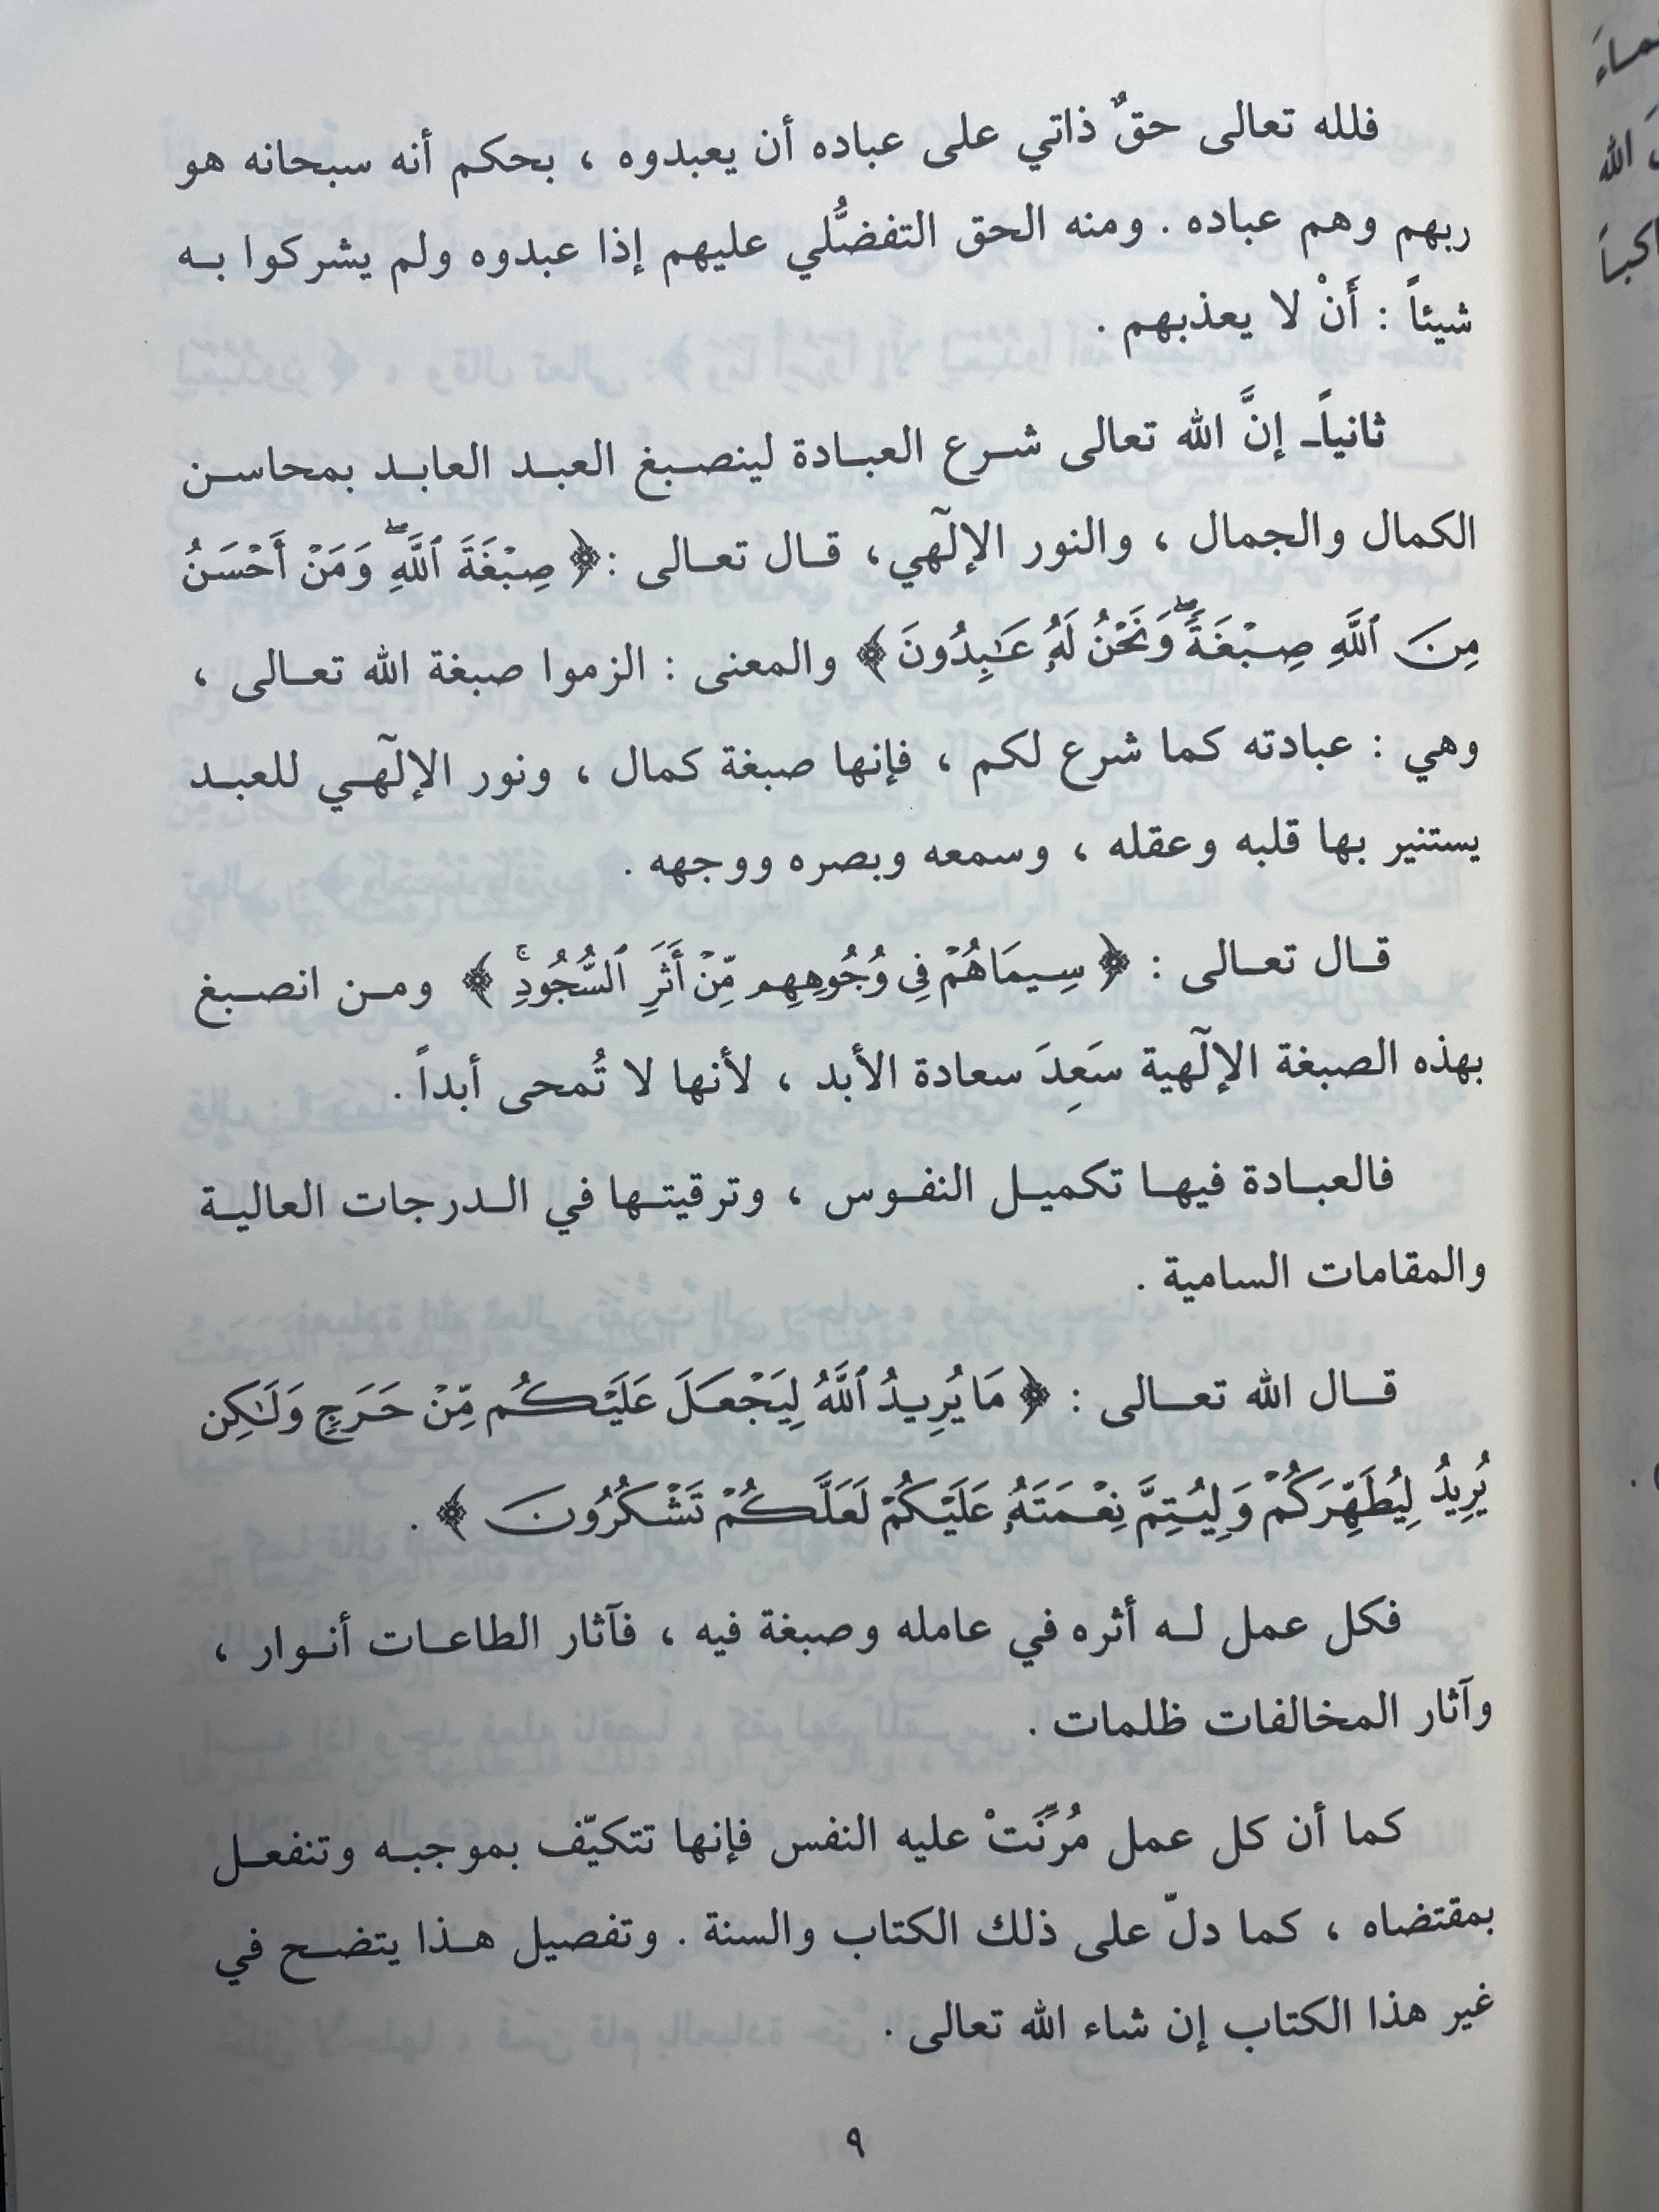 فلله تعالى حقٌ ذاتي على عباده أن يعبدوه ، بحكم أنه سبحانه هو
ربهم وهم عباده . ومنه الحق التفضُّلي عليهم إذا عبدوه ولم يشركوا به
شيئاً : أَنْ لا يعذبهم .
ثانياً ـ إنَّ الله تعالى شرع العبادة لينصبغ العبد العابد بمحاسن
الكمال والجمال ، والنور الإلٓهي ، قال تعالى : ﴿ صِبْغَةَ ٱللَّهِ ۖ وَمَنْ أَحْسَنُ
مِنَ ٱللَّهِ صِبْغَةً ۖ وَنَحْنُ لَهُۥ عَـٰبِدُونَ ﴾ والمعنى : الزموا صبغة الله تعالى ،
وهي : عبادته كما شرع لكم ، فإنها صبغة كمال ، ونور الإلٓهي للعبد
يستنير بها قلبه وعقله ، وسمعه وبصره ووجهه .
قال تعالى : ﴿ سِيمَاهُمْ فِى وُجُوهِهِم مِّنْ أَثَرِ ٱلسُّجُودِ ۚ ﴾ ومن انصبغ
بهذه الصبغة الإلٓهية سَعِدَ سعادة الأبد ، لأنها لا تُمحى أبداً .
فالعبادة فيها تكميل النفوس ، وترقيتها في الدرجات العالية
والمقامات السامية .
قال الله تعالى : ﴿ مَا يُرِيدُ ٱللَّهُ لِيَجْعَلَ عَلَيْكُم مِّنْ حَرَجٍ وَلَـٰكِن
يُرِيدُ لِيُطَهِّرَكُمْ وَلِيُتِمَّ نِعْمَتَهُۥ عَلَيْكُمْ لَعَلَّكُمْ تَشْكُرُونَ ﴾ .
فكل عمل له أثره في عامله وصبغة فيه ، فآثار الطاعات أنوار ،
وآثار المخالفات ظلمات .
كما أن كل عمل مُرِّنَتْ عليه النفس فإنها تتكيّف بموجبه وتنفعل
بمقتضاه ، كما دلّ على ذلك الكتاب والسنة . وتفصيل هذا يتضح في
غير هذا الكتاب إن شاء الله تعالى .
٩